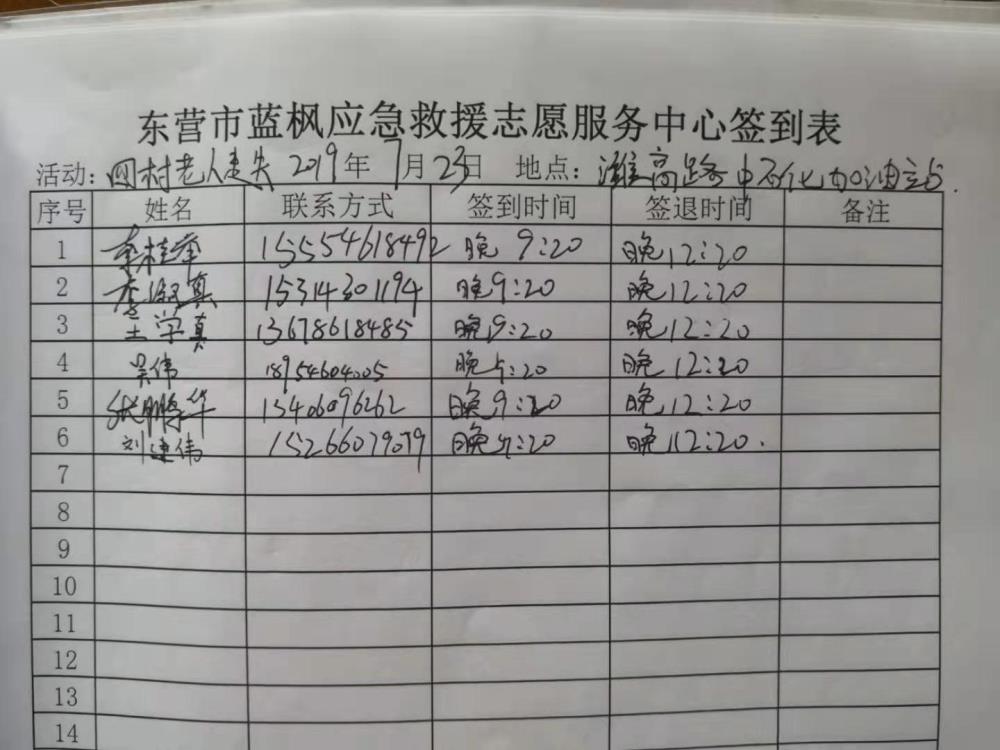 东营市蓝枫应急救援志愿服务中心签到表
活动:四村老人走失 2019年 7月23日 地点:潍高路中石化加油站.
序号 姓名 联系方式 签到时间 签退时间 备注
1 李桂奎 15554618492 晚 9:20 晚12:20
2 李淑真 15314301194 晚9:20 晚12:20
3 王学真 13678618485 晚9:20 晚12:20
4 吴伟 18954604005 晚9:20 晚12:20
5 张鹏华 13406096262 晚9:20 晚12:20
6 刘建伟 15266079079 晚9:20 晚12:20.
7
8
9
10
11
12
13
14